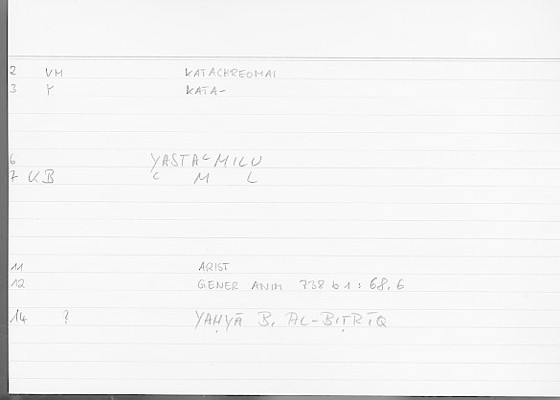 2 VM KATACHREOMAI
3 Y KATA-
6 YASTAʿMILU
7 KB ʿ M L
11 ARIST
12 GENER ANIM 738 b 1 : 68.6
14 ? YAḤYĀ B. AL-BIṬRĪQ